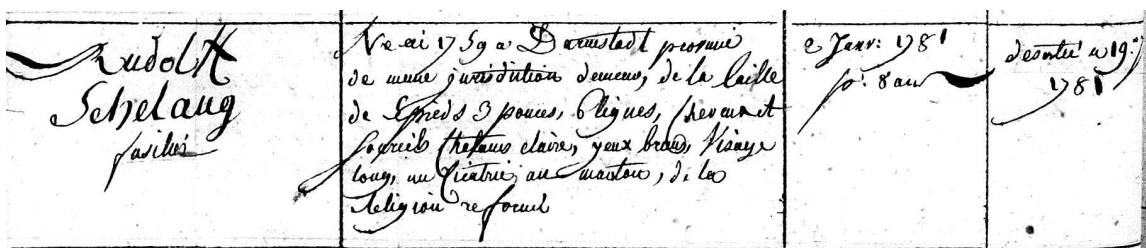 Rudolff
Schelaug
fusilié
Né en 1759 a Darmstadt province
de meme jurisdiction demeure, de la taille
de 5 pieds 3 pouces, 6 lignes, cheveux et
sourcils chatains claire, yeux bruns, visage
long, un cicatrice au manton, de la
Religion reformé
2 Janv: 1781
pr: 8 ans
deserté 19:
1781